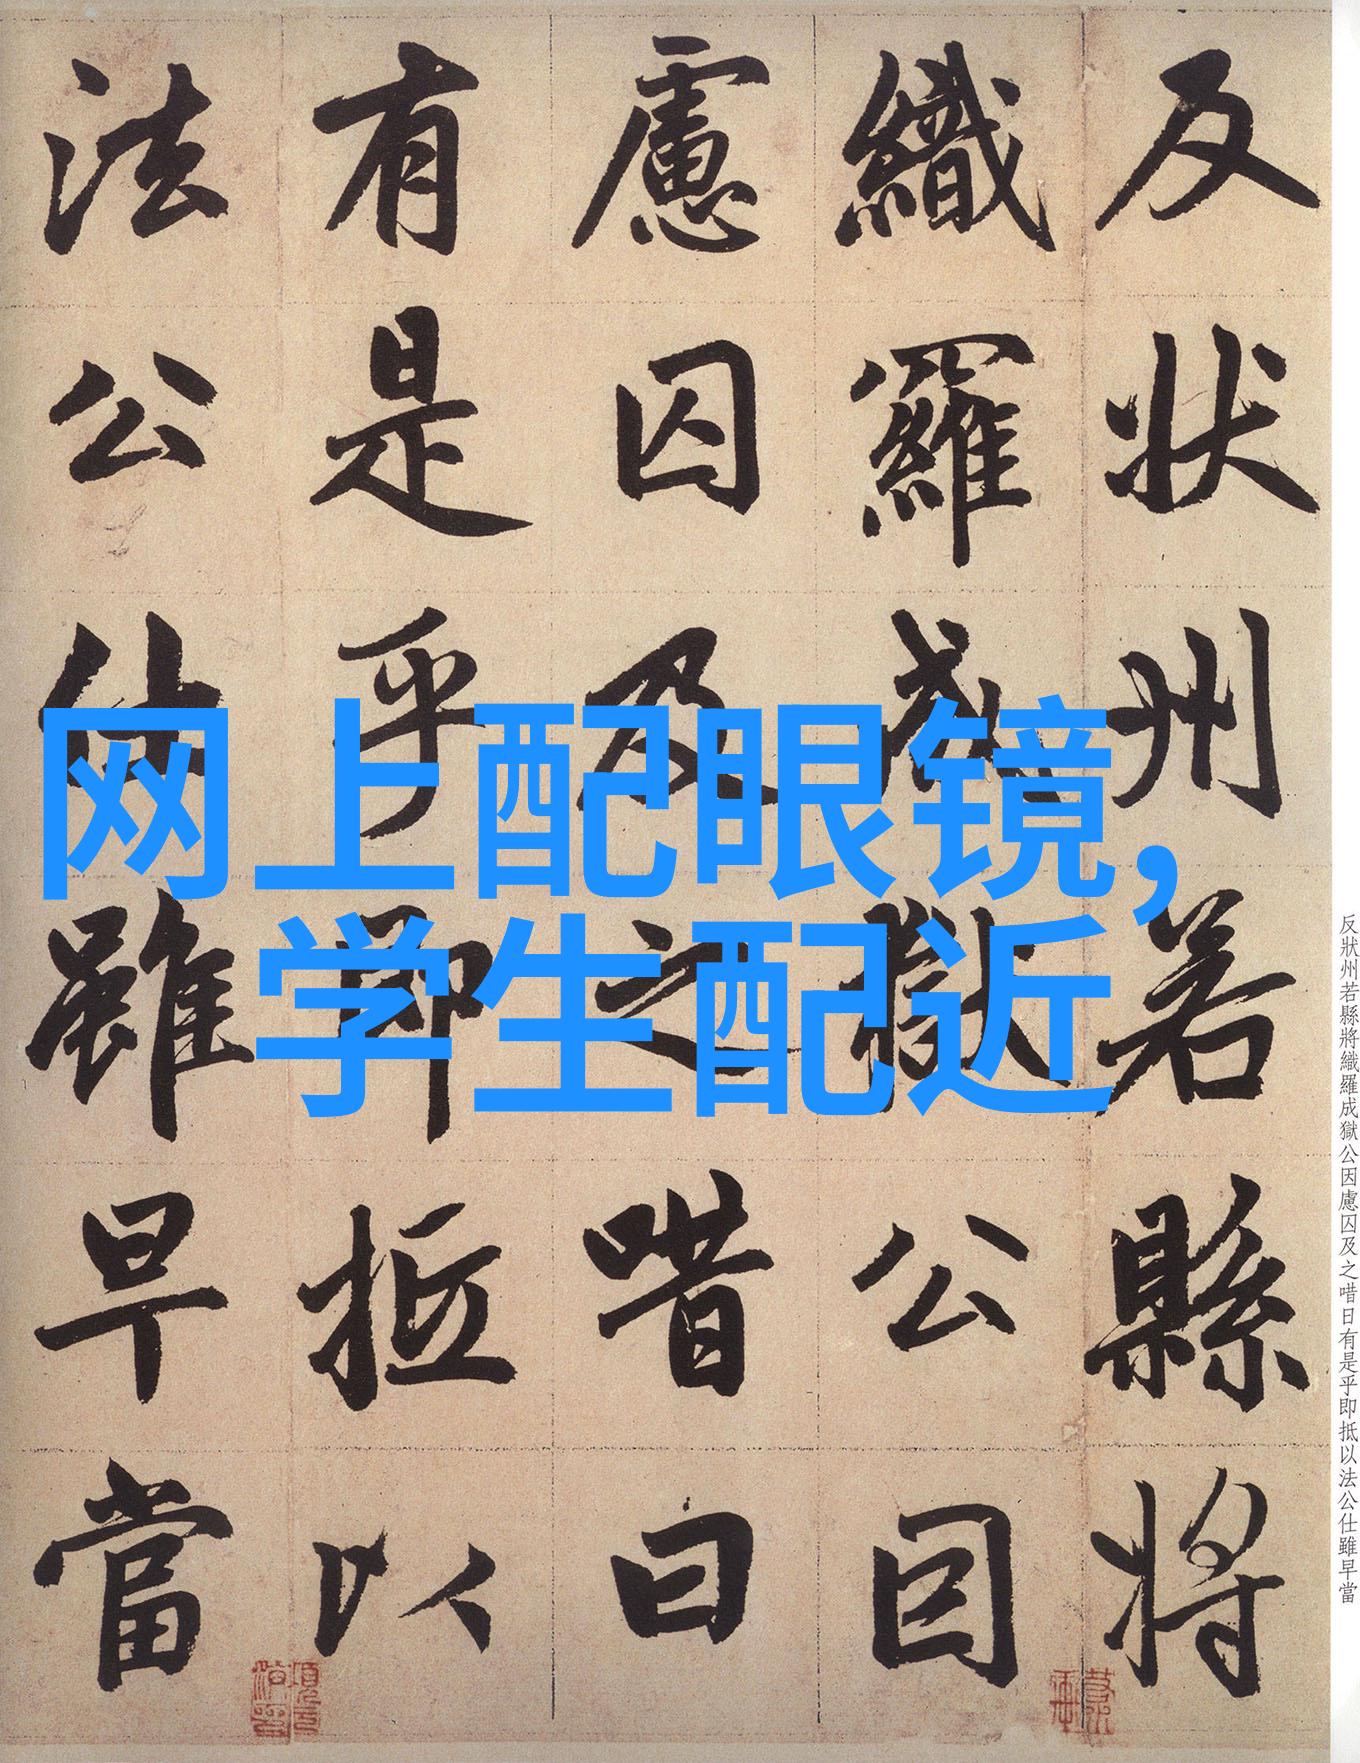 反状州若縣將
織羅成獄公因
慮囚及之唶曰
有是乎即抵以
法公仕雖早當
网上配眼镜，
学生配近
反狀州若縣將織羅成獄公因慮囚及之唶日有是乎即抵以法公仕雖早當